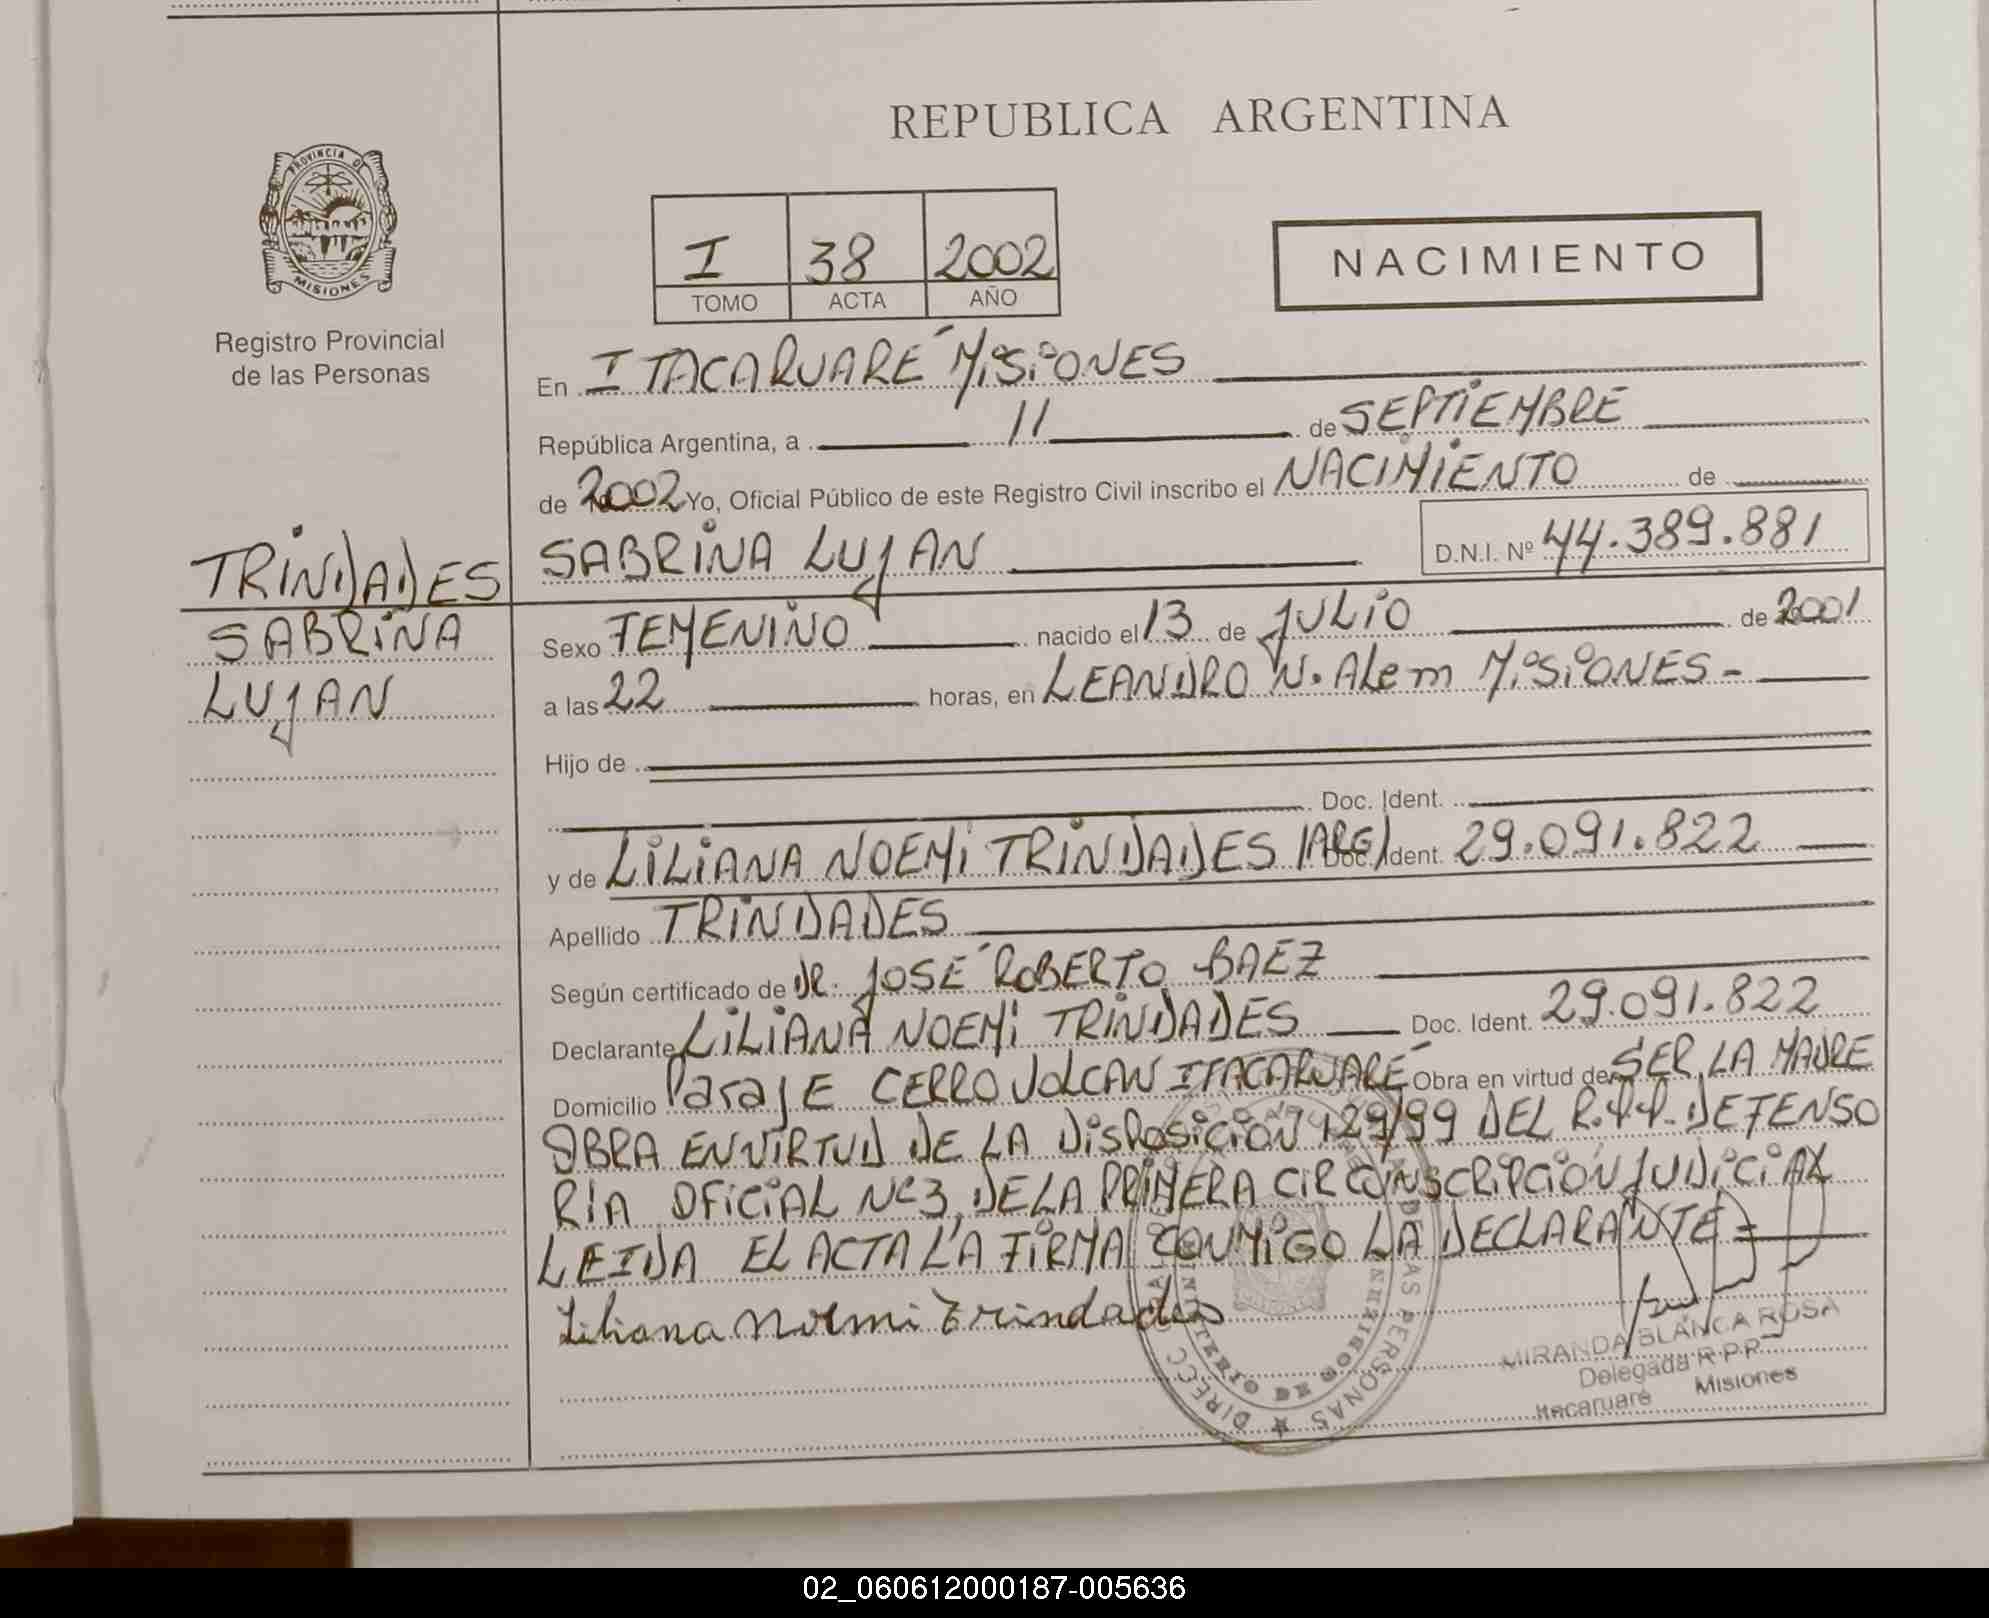 REPUBLICA ARGENTINA
PROVINCIA DE
MISIONES
Registro Provincial
de las Personas
I 38 2002
TOMO ACTA AÑO
NACIMIENTO
En ITACARUARÉ MiSiONES
República Argentina, a 11 de SEPTIEMBRE
de 2002 Yo, Oficial Público de este Registro Civil inscribo el NACIMIENTO de
SABRINA LUJAN D.N.I. Nº 44.389.881
TRINDADES
SABRINA
LUJAN
Sexo FEMENINO nacido el 13 de JULIO de 2001
a las 22 horas, en LEANDRO N. ALem MiSiONES -
Hijo de
Doc. Ident.
y de LILIANA NOEMI TRINDADES (ARG) Doc. Ident. 29.091.822
Apellido TRINDADES
Según certificado de DR. JOSÉ ROBERTO BAEZ
Declarante LILIANA NOEMI TRINDADES Doc. Ident. 29.091.822
Domicilio ParajE CERRO VOLCAN ITACARUARÉ Obra en virtud de SER LA MADRE
OBRA EN VIRTUD DE LA DISPOSICIÓN 129/99 DEL R.P.P. DEFENSO
RIA OFICIAL Nº3 DE LA PRIMERA CIRCONSCRIPCIÓN JUDICIAL
LEIDA EL ACTA LA FIRMA CONMIGO LA DECLARANTE -
Liliana Noemi Trindades
MIRANDA BLANCA ROSA
Delegada R.P.P.
Itacaruaré Misiones
02_060612000187-005636